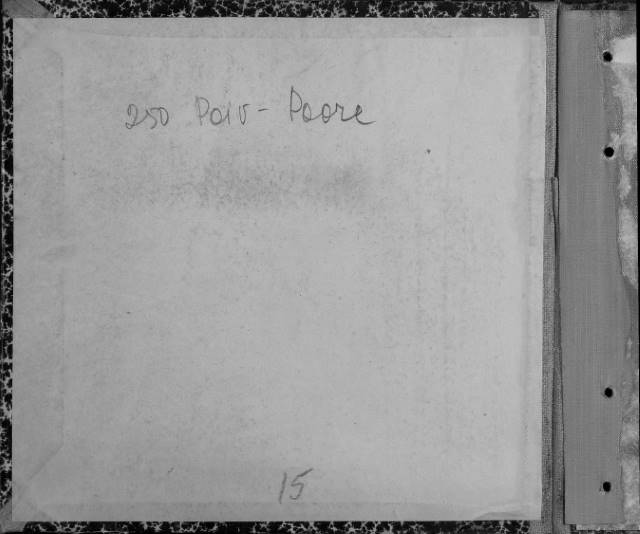 250 Poiv - Poore
15